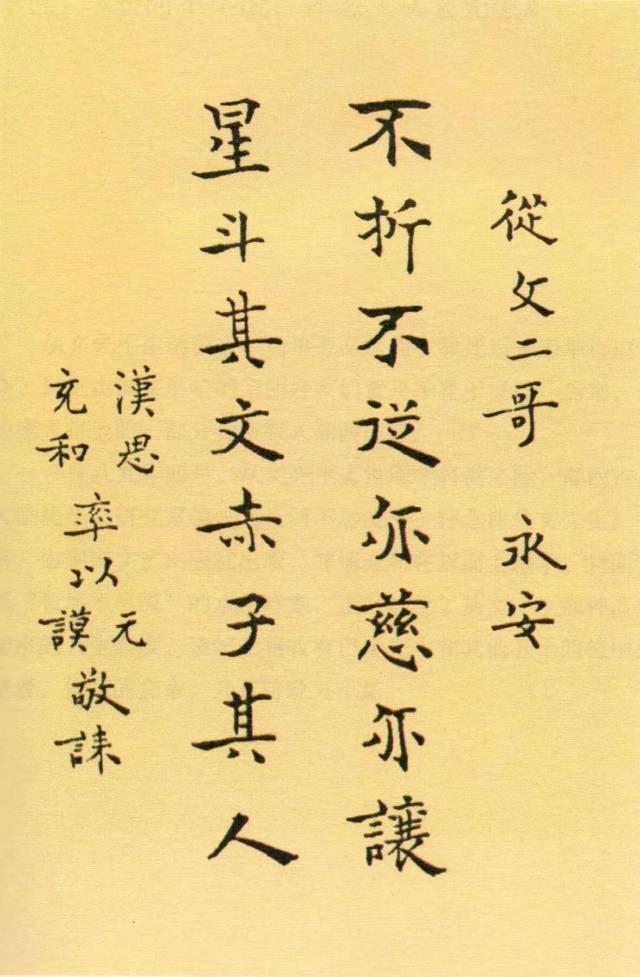 從文二哥 永安
不折不從亦慈亦讓
星斗其文赤子其人
漢思
充和
率以
元
謨
敬誄